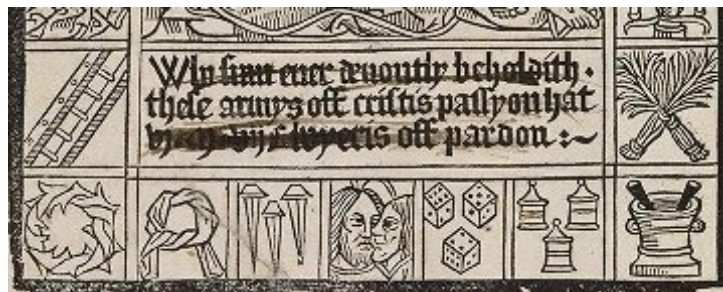 Who sum euer deuoutly beholdith
these armys off cristis passyon hat
yeris off pardon :~